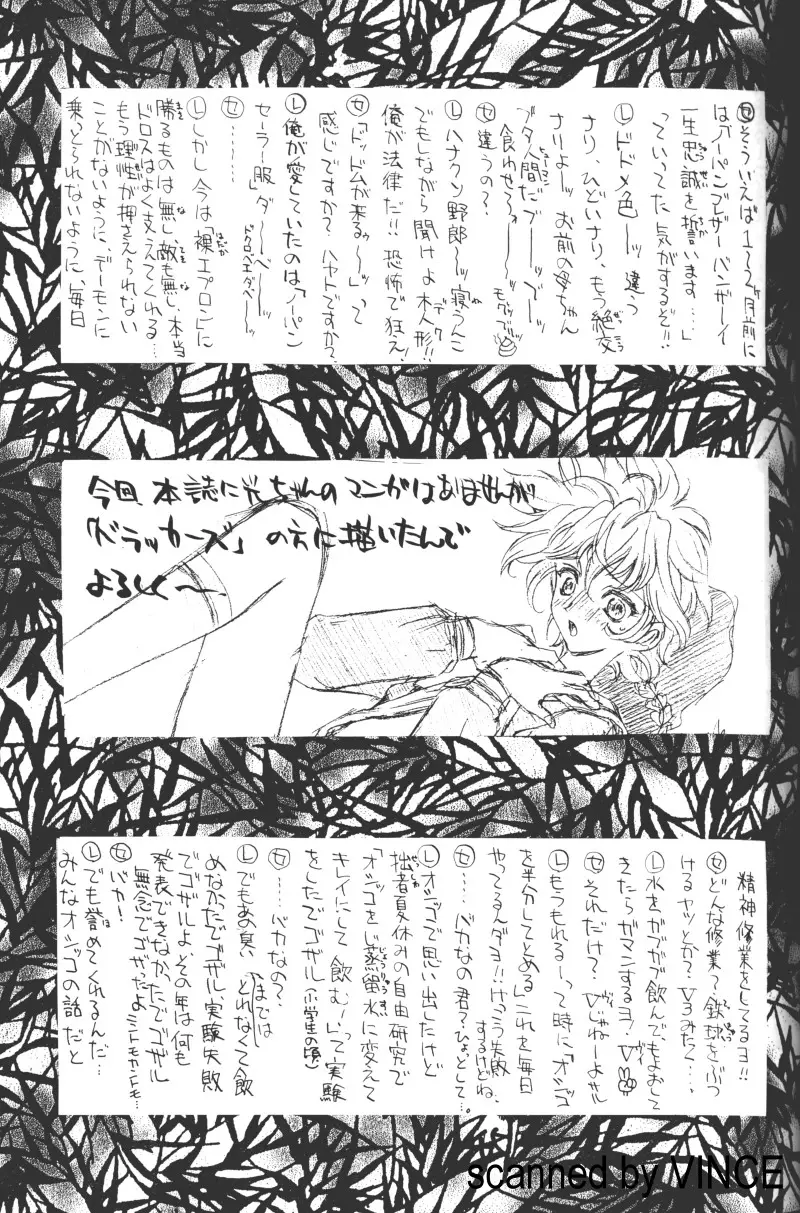 ㊛そういえば1〜2ヶ月前に
は「ノーパンブレザーバンザーイ
一生忠誠を誓います……」
っていってた気がするぞ!!
Ⓛドドメ色ーッ 違う
なり、ひどいなり、もう絶交
ナリよーッ お前の母ちゃん
ブタ人間だブーッブーッ
食わせろォーー
モグッブー
㊛違うの?
Ⓛハナクソ野郎〜ッ 寝うんこ
でもしながら聞けよ木人形!!
俺が法律だ!! 恐怖で狂え!
㊛「ドッドムが来るゥ〜ッ」って
感じですか? ハヤトですか?
Ⓛ俺が愛していたのは「ノーパン
セーラー服」ダ〜ーベーッ
㊛………
Ⓛしかし今は「裸エプロン」に
勝るものは無し敵も無し、本当
ドロスはよく支えてくれる…
もう理性が押さえられない
ことがないように、デーモンに
乗っとられないように、毎日
今回 本誌に兄ちゃんのマンガはありませんが
「ドラッカーズ」の方に描いたんで
よろしく〜
精神修業をしてるヨ!!
㊛どんな修業? 鉄球をぶつ
けるヤツとか? V3みたく…、
Ⓛ水をガブガブ飲んで、もよおして
きたらガマンするヨ? V
㊛それだけ? Vじゃねーよ
Ⓛもうもれるーって時に「オシッコ
を半分してとめる」これを毎日
やってるんダヨ!! けっこう失敗
するけどね、
㊛……バカなの君? ひょっとして…。
Ⓛオシッコで思い出したけど
拙者夏休みの自由研究で
「オシッコをじょう蒸留水に変えて
キレイにして飲む!」って実験
をしたでゴザル(小学生の頃)
㊛……バカなの?
Ⓛでもあの臭いまでは
とれなくて飲
めなかたでゴザル実験失敗
でゴザルよ、その年は何も
発表できなかったでゴザル
無念でゴザったよ ミトモカントモ…
㊛バカ!
Ⓛでも誉めてくれるんだ…
みんなオシッコの話だと
scanned by VINCE